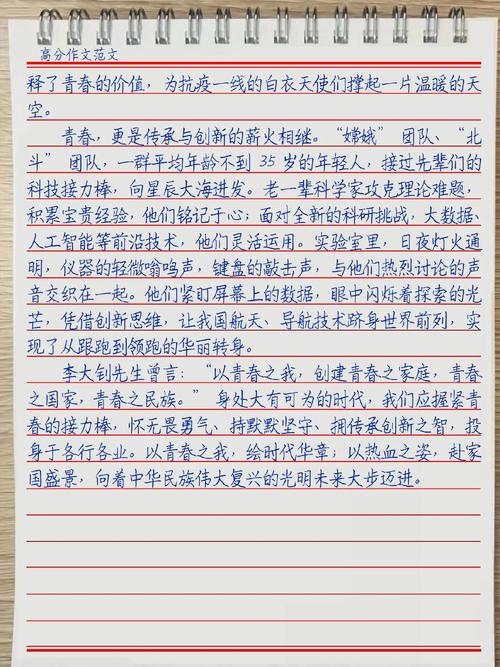 高分作文范文
释了青春的价值，为抗疫一线的白衣天使们撑起一片温暖的天
空。
青春，更是传承与创新的薪火相继。“嫦娥” 团队、“北
斗” 团队，一群平均年龄不到 35 岁的年轻人，接过先辈们的
科技接力棒，向星辰大海进发。老一辈科学家攻克理论难题，
积累宝贵经验，他们铭记于心；面对全新的科研挑战，大数据、
人工智能等前沿技术，他们灵活运用。实验室里，日夜灯火通
明，仪器的轻微嗡鸣声，键盘的敲击声，与他们热烈讨论的声
音交织在一起。他们紧盯屏幕上的数据，眼中闪烁着探索的光
芒，凭借创新思维，让我国航天、导航技术跻身世界前列，实
现了从跟跑到领跑的华丽转身。
李大钊先生曾言：“以青春之我，创建青春之家庭，青春
之国家，青春之民族。” 身处大有可为的时代，我们应握紧青
春的接力棒，怀无畏勇气、持默默坚守、拥传承创新之智，投
身于各行各业。以青春之我，绘时代华章；以热血之姿，赴家
国盛景，向着中华民族伟大复兴的光明未来大步迈进。